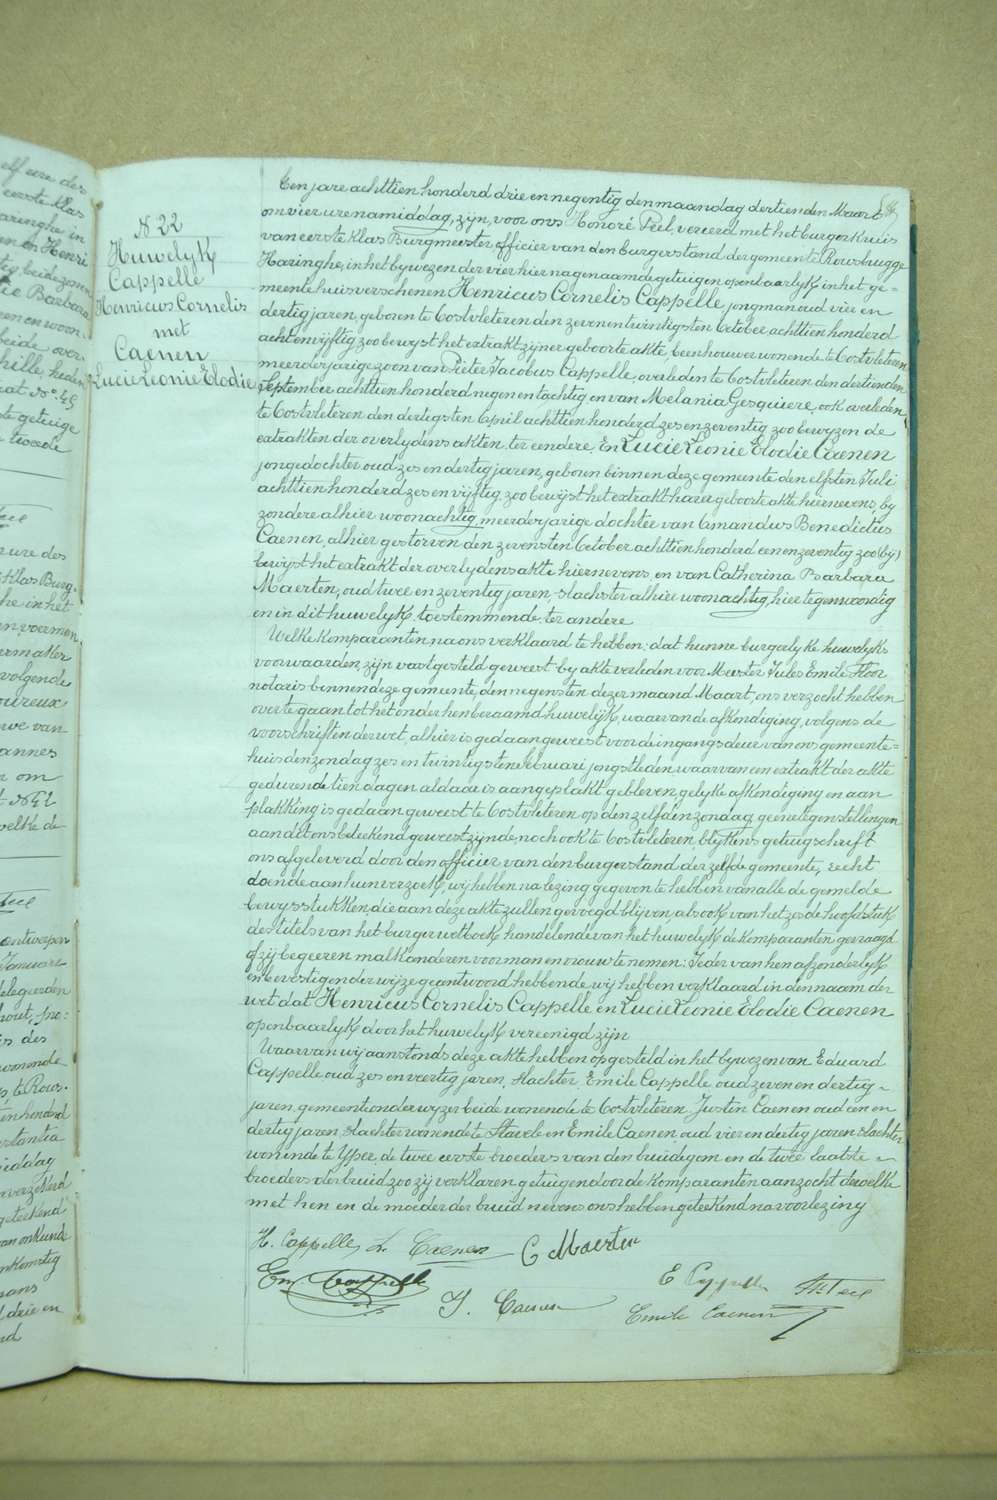 N 22
Huwelyk
Cappelle
Henricus Cornelis
met
Caenen
Lucie Leonie Elodie
Ten jare achttien honderd drie en negentig den maandag dertienden Maart
om vier ure namiddag, zijn, voor ons Honoré Peel, vereerd met het burgerkruis
van eerste klas Burgmeester, officier van den burgerstand der gemeente Rousbrugge
Haringhe, in het bywezen der vier hier nagenaamde getuigen openbaarlyk in het ge=
meente huis verschenen Henricus Cornelis Cappelle jongman oud vier en
dertig jaren, geboren te Oostvleteren den zeven en twintigsten October achttien honderd
acht en vijftig zoo bewyst het extrakt zijner geboorte akte, beenhouwer wonende te Oostvleteren
meerderjarige zoon van Pieter Jacobus Cappelle, overleden te Oostvleteren den dertienden
September achttien honderd negen en tachtig en van Melania Gesquiere, ook overleden
te Oostvleteren den dertigsten April achttien honderd zes en zeventig zoo bewyzen de
extrakten der overlydens akten, ter eendere, En Lucie Leonie Elodie Caenen
jongedochter oud zes en dertig jaren, geboren binnen deze gemeente den elfsten Juli
achttien honderd zes en vijftig, zoo bewijst het extrakt harer geboorte akte hiernevens, by
zondere alhier woonachtig, meerderjarige dochter van Amandus Benedictus
Caenen, alhier gestorven den zevensten October achttien honderd een en zeventig zoo (bij)
bewijst het extrakt der overlydens akte hiernevens, en van Catherina Barbara
Maerten, oud twee en zeventig jaren, slachster alhier woonachtig hier tegenwoordig
en in dit huwelyk toestemmende, ter andere
Welke komparanten, na ons verklaard te hebben, dat hunne burgerlyke huwelyks
voorwaarden, zijn vastgesteld geweest by akte verleden voor Meester Jules Emile Floor
notaris bennen deze gemeente, den negensten dezer maand Maart, ons verzocht hebben
over te gaan tot het onder hen beraamd huwelijk, waarvan de afkondiging, volgens de
voorschriften der wet, alhier is gedaan geweest voor de ingangs deure van ons gemeente=
huis den zondag zes en twintigsten Februari jongstleden, waarvan een extrakt der akte
gedurende tien dagen aldaar is aangeplakt gebleven, gelyke afkondiging en aan
plakking is gedaan geweest te Oostvleteren op den zelfden zondag, geene tegenstellingen
aan dit ons beteekend geweest zijnde, noch ook te Oostvleteren, blykens getuigschrift
ons afgeleverd door den officier van den burgerstand der zelfde gemeente, recht
doende aan hun verzoek, wij hebben, na lezing gegeven te hebben van alle de gemelde
bewysstukken, die aan deze akte zullen gevoegd blijven, alsook van het zesde hoofdstuk
des titels van het burger wetboek handelende van het huwelyk de komparanten gevraagd
of zij begeeren malkanderen voor man en vrouw te nemen: Ieder van hen afzonderlyk
en bevestigender wijze geantwoord hebbende, wij hebben verklaard in den naam der
wet dat Henricus Cornelis Cappelle en Lucie Leonie Elodie Caenen
openbaarlyk door het huwelyk vereenigd zijn
Waarvan wij aanstonds deze akte hebben opgesteld in het bywezen van Eduard
Cappelle oud zes en veertig jaren, slachter, Emile Cappelle oud zeven en dertig
jaren, gemeente onderwyzer beide wonende te Oostvleteren, Justin Caenen oud een en
dertig jaren, slachter wonende te Stavele en Emile Caenen, oud vier en dertig jaren slachter
wonende te Yper, de twee eerste broeders van den bruidegom en de twee laatste
broeders der bruid zoo zij verklaren, getuigen door de komparanten aanzocht dewelke
met hen en de moeder der bruid nevens ons hebben geteekend na voorlezing
H. Cappelle L. Caenen C Maerten
Em Cappelle E Cappelle H Peel
J. Caenen Emile Caenen